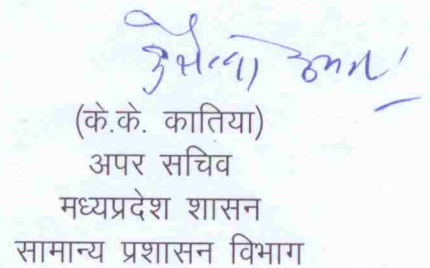 (के.के. कातिया)
अपर सचिव
मध्यप्रदेश शासन
सामान्य प्रशासन विभाग